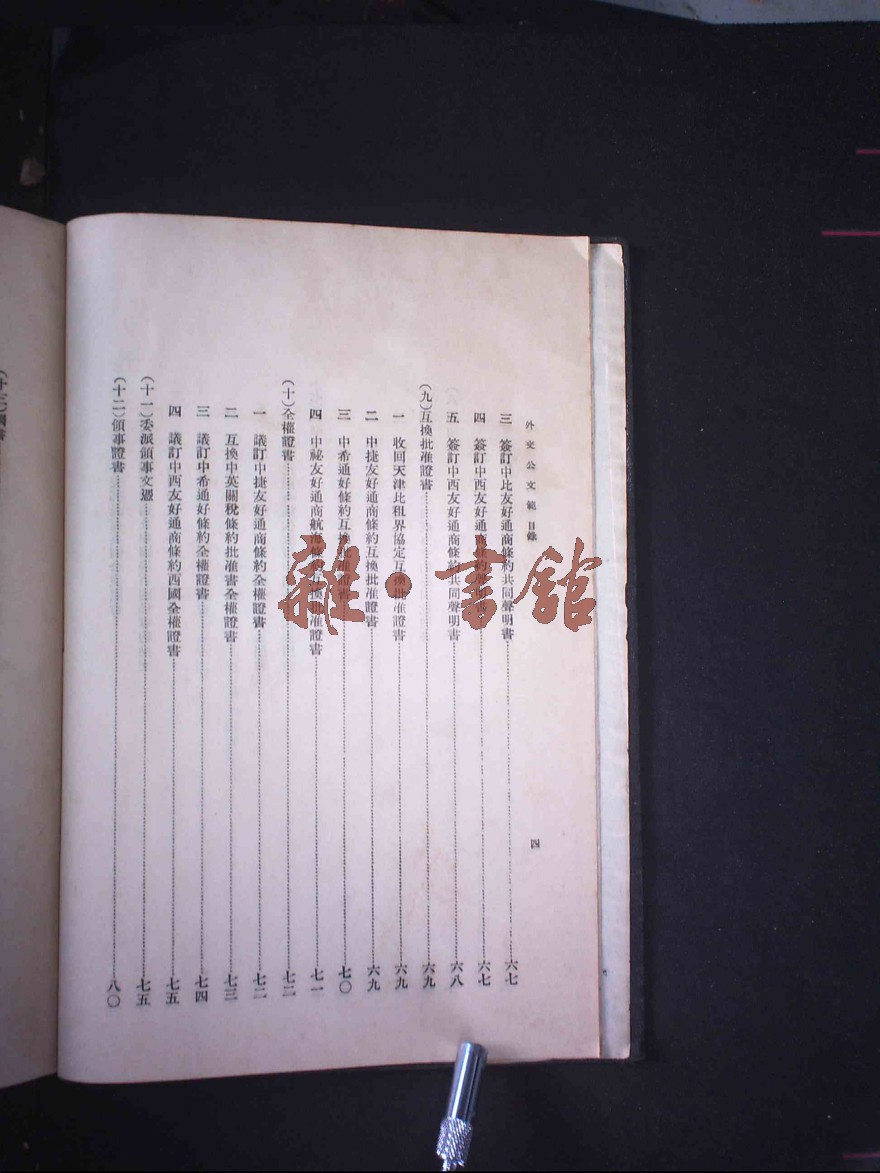 外交公文範 目錄
四
三 簽訂中比友好通商條約共同聲明書 六七
四 簽訂中西友好通商條約聲明書 六七
五 簽訂中西友好通商條約共同聲明書 六八
(九)互換批准證書 六九
一 收回天津比租界協定互換批准證書 六九
二 中捷友好通商條約互換批准證書 六九
三 中希通好條約互換批准證書 七〇
四 中祕友好通商航海條約互換批准證書 七一
(十)全權證書 七二
一 議訂中捷友好通商條約全權證書 七二
二 互換中英關稅條約批准書全權證書 七三
三 議訂中希通好條約全權證書 七四
四 議訂中西友好通商條約西國全權證書 七五
(十一)委派領事文憑 七五
(十二)領事證書 八〇
雜·書館